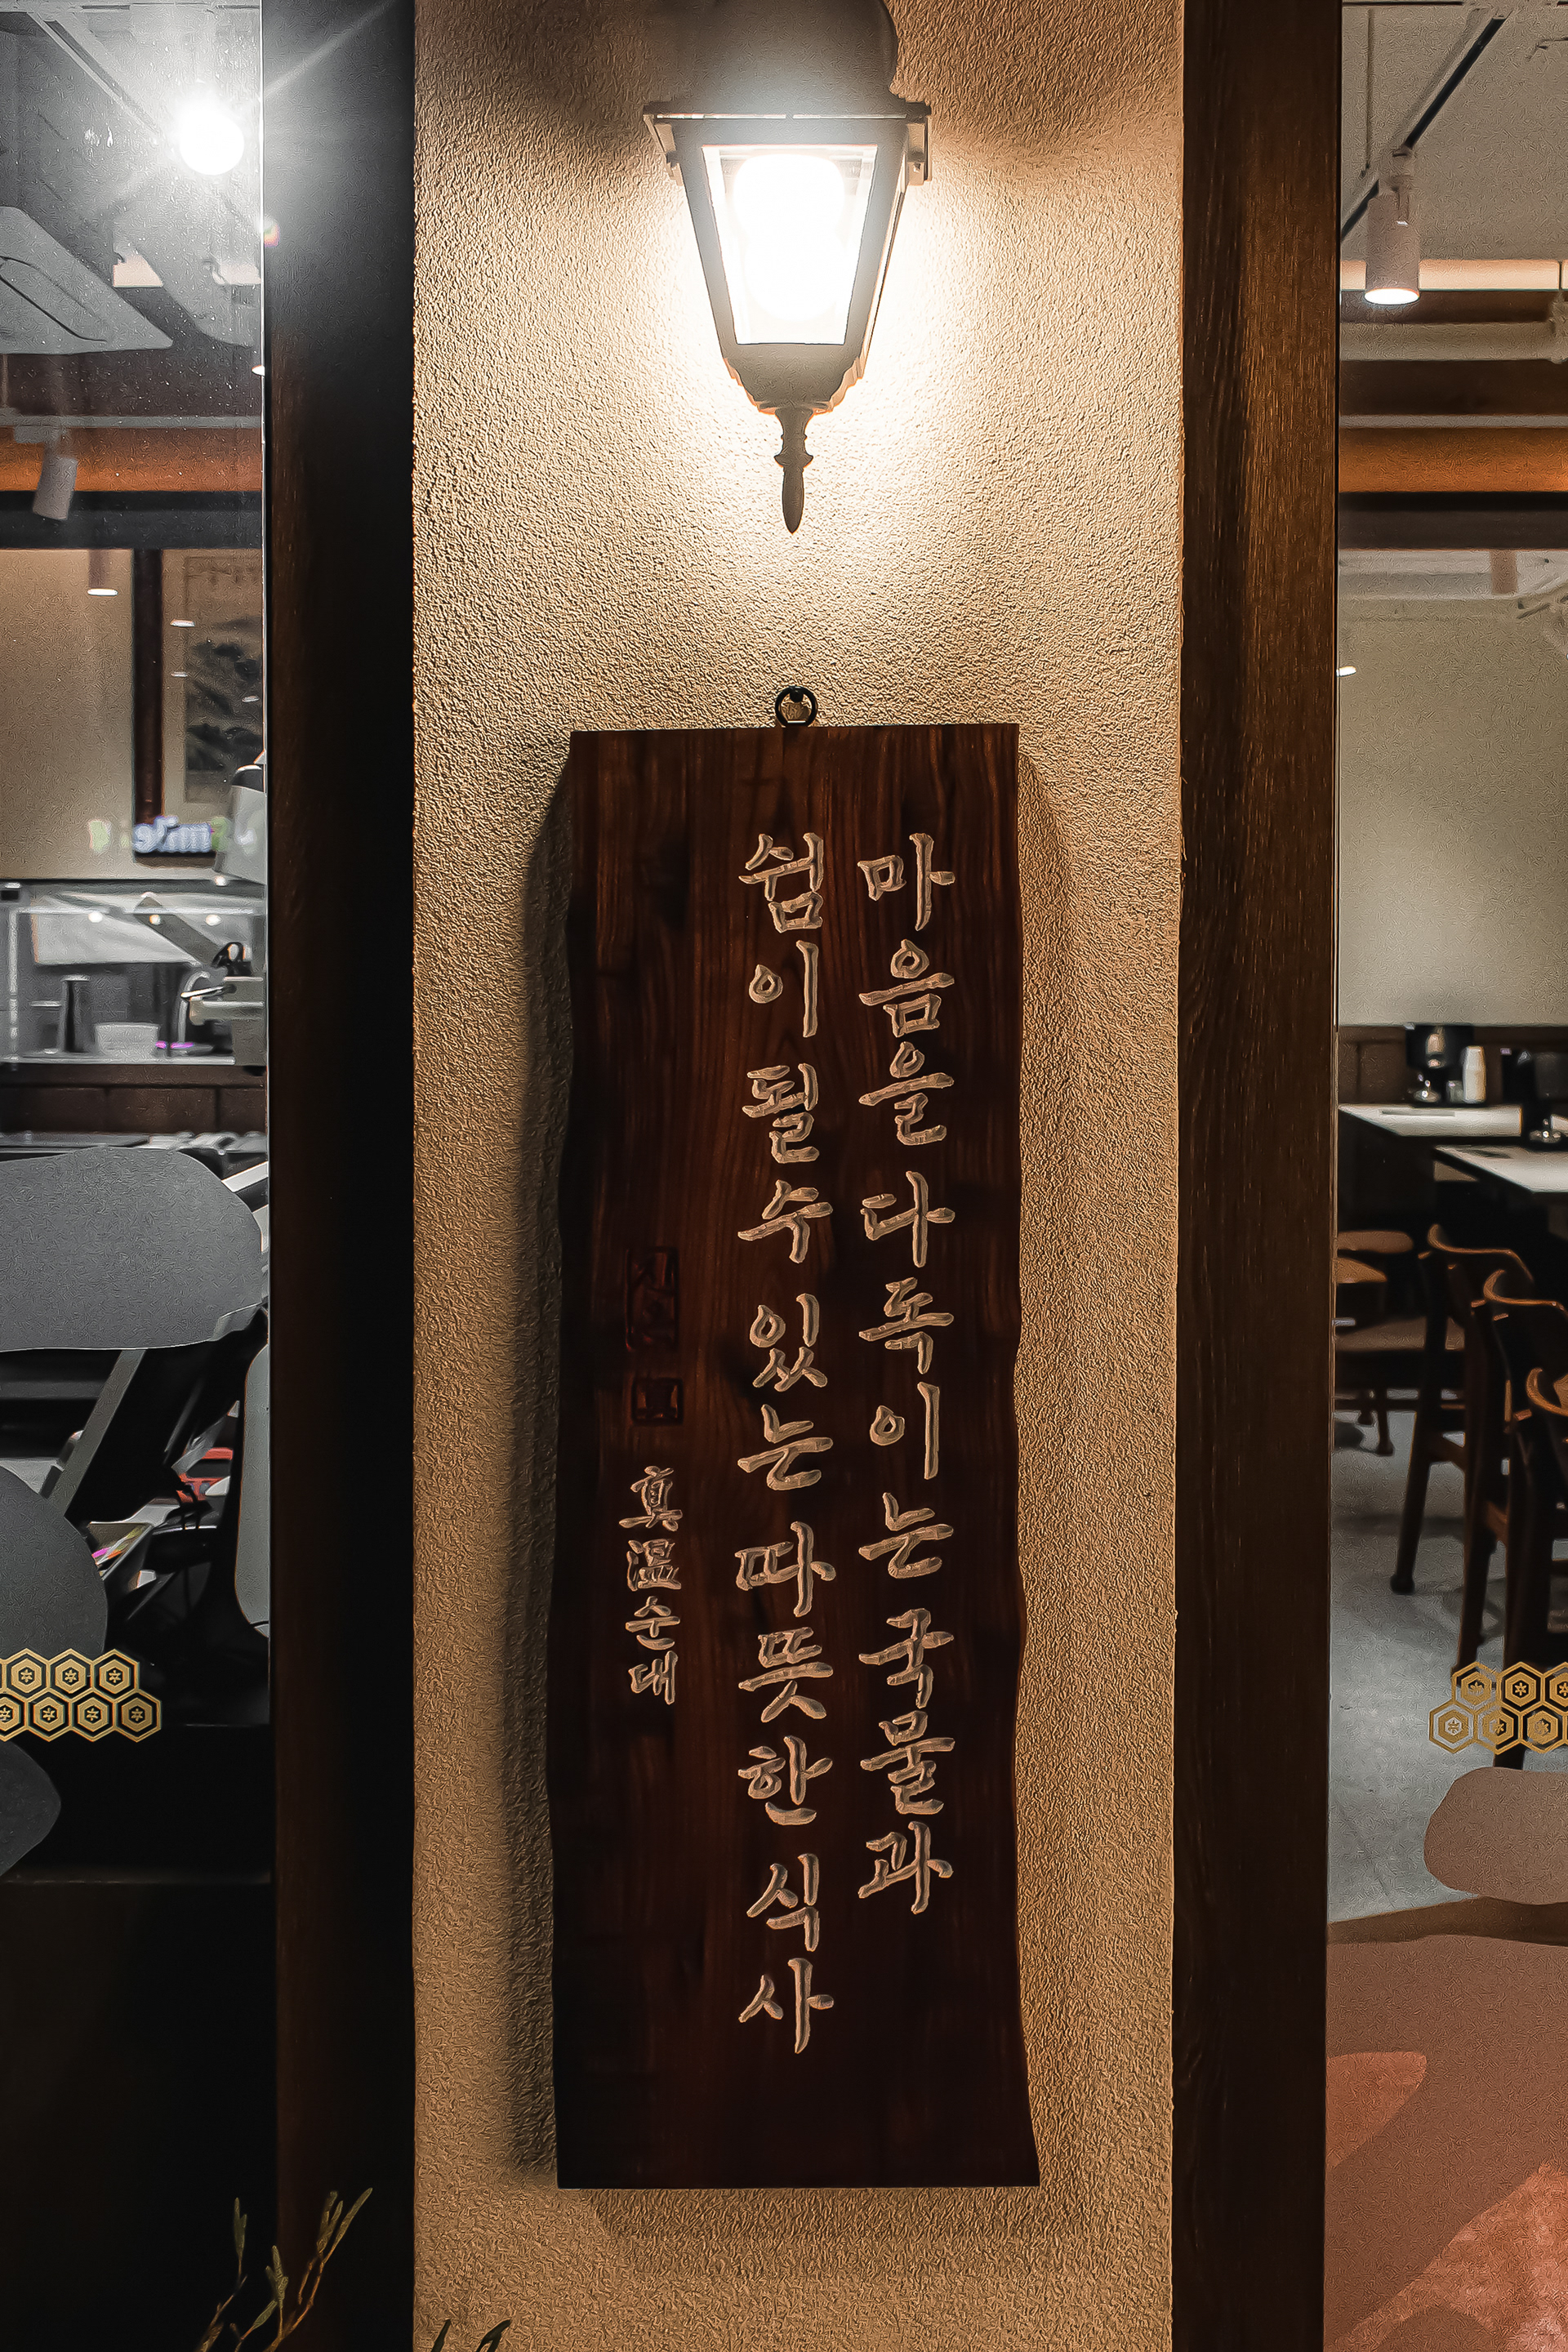 마음을 다독이는 국물과
쉼이 될 수 있는 따뜻한 식사
真溫순대